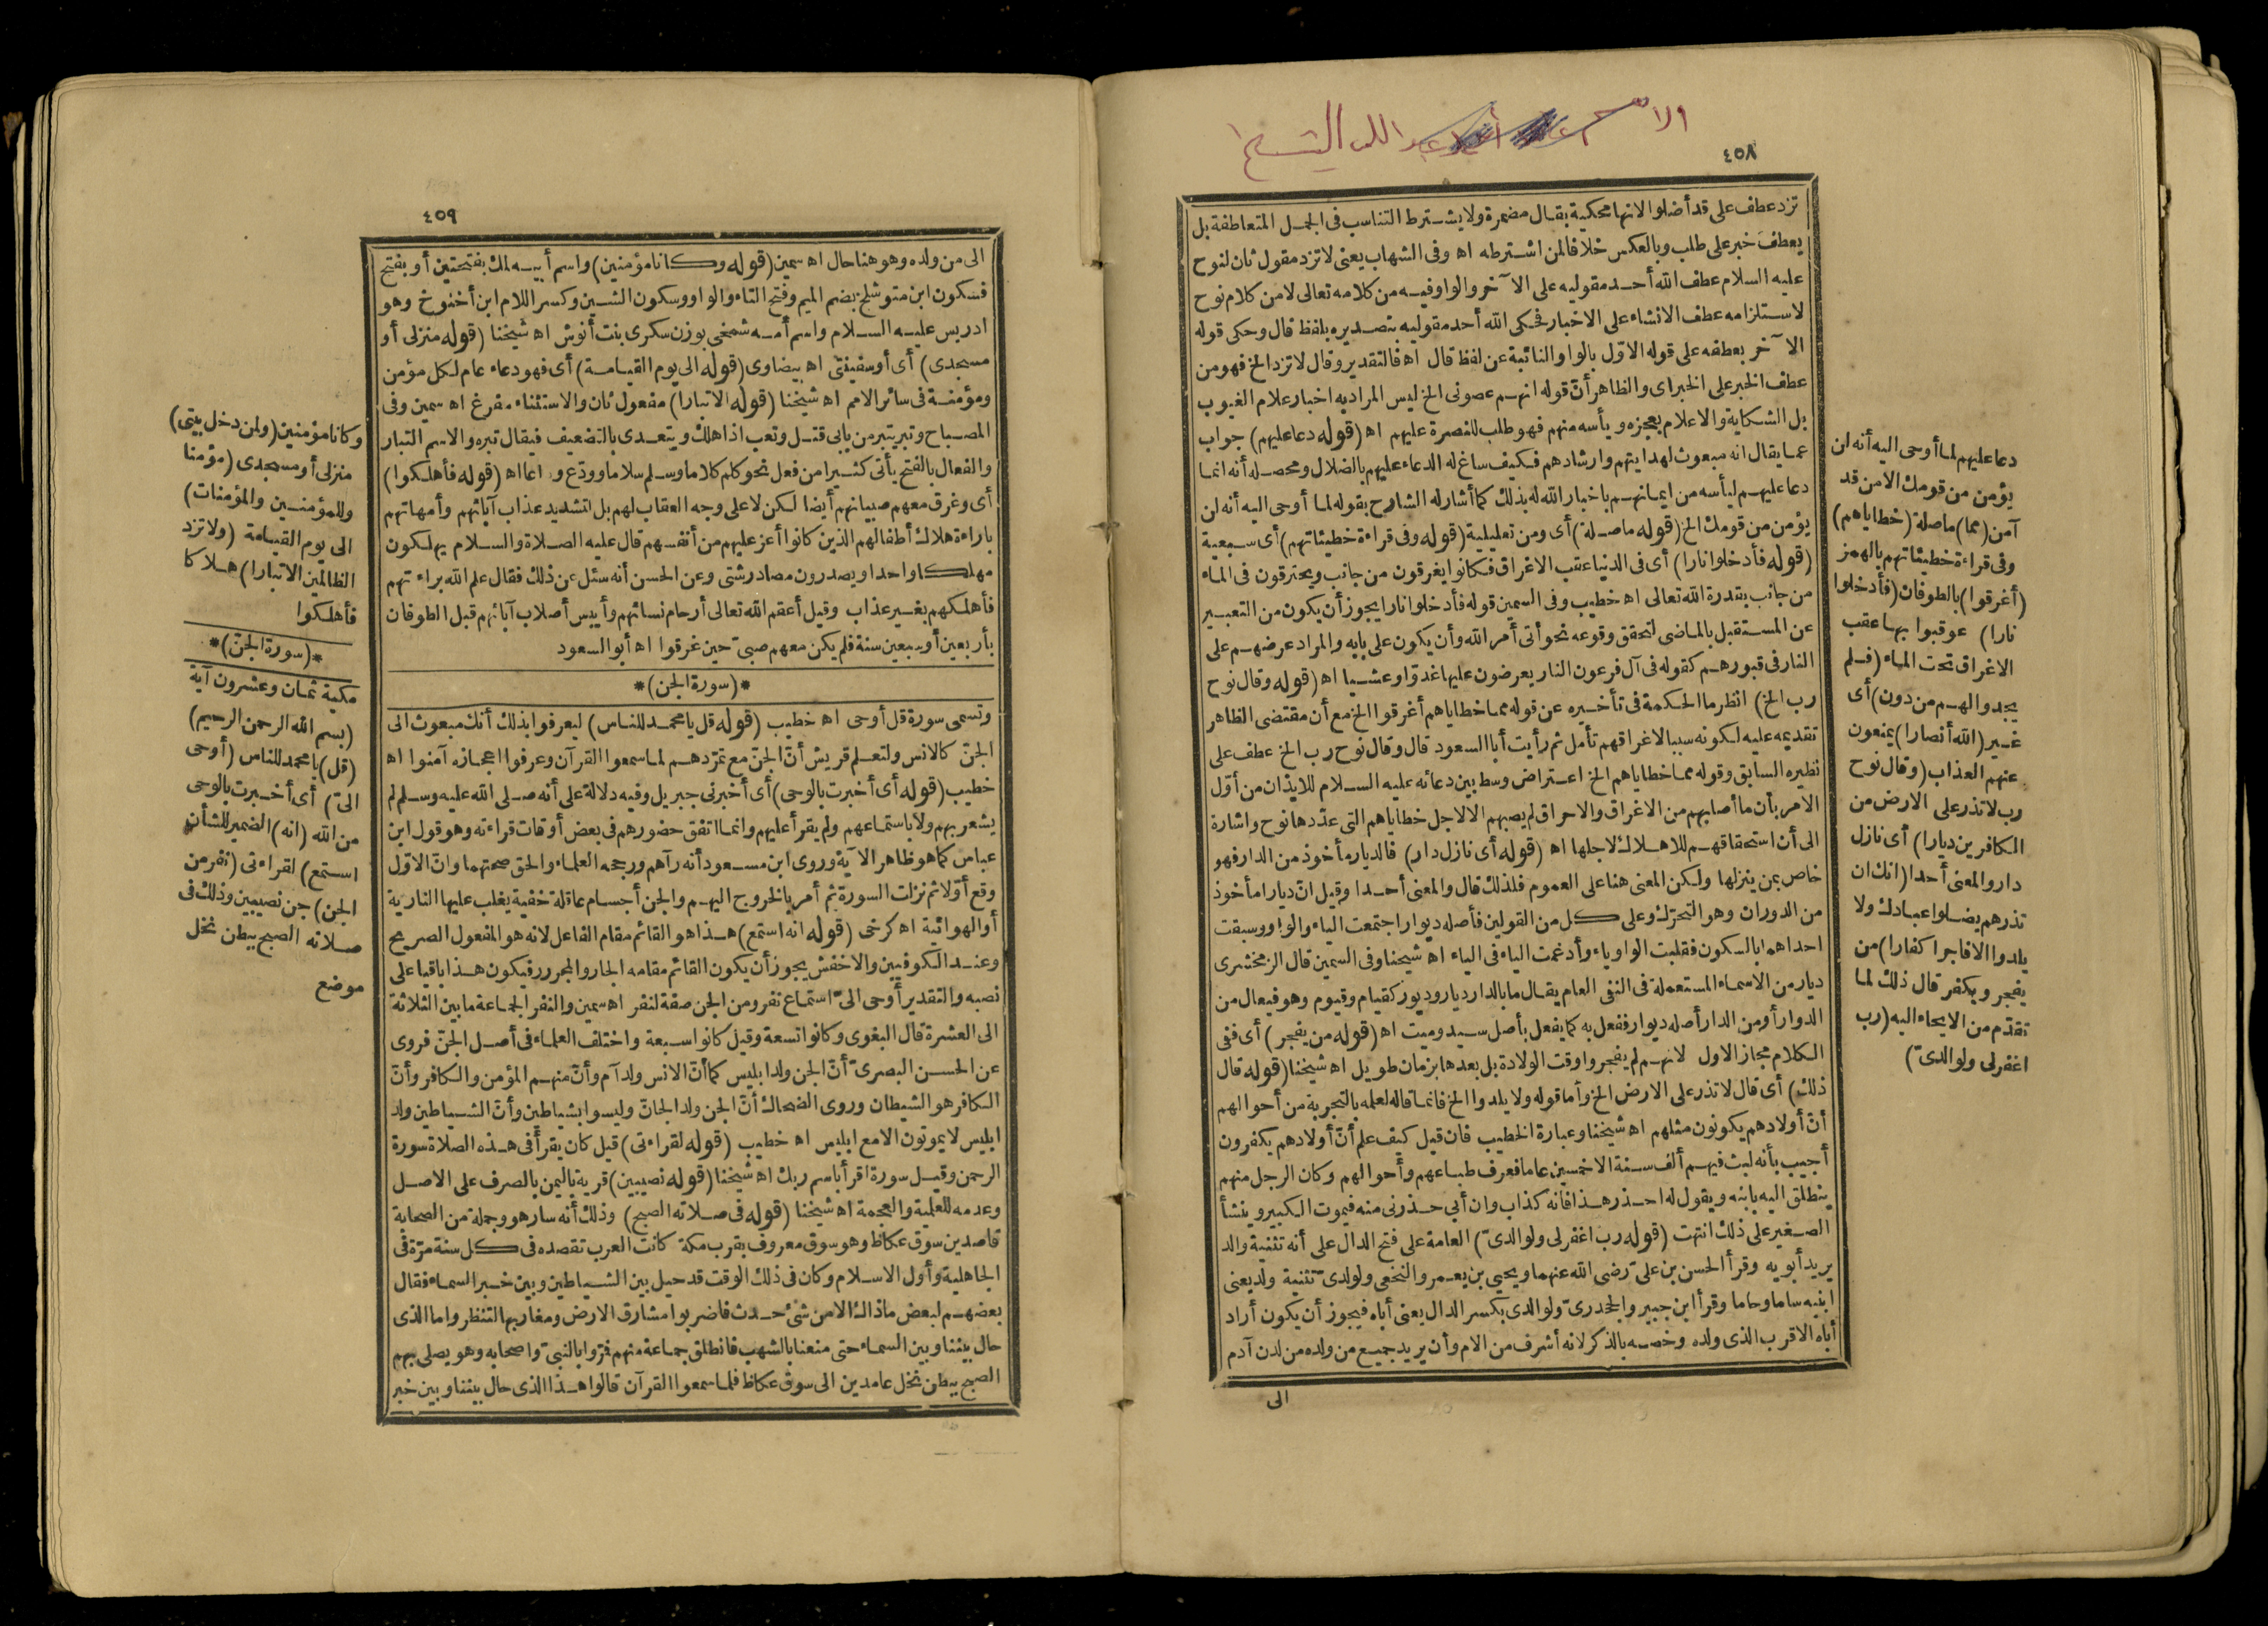 ٤٥٨
تزد عطف على قد أضلوا لانها محكية بقال مضمرة ولا يشترط التناسب فى الجمل المتعاطفة بل
يعطف خبر على طلب وبالعكس خلافا لمن اشترطه اه وفى الشهاب يعنى لا تزد مقول ثان لنوح
عليه السلام عطف الله أحد مقوليه على الآخر والواو فيه من كلامه تعالى لا من كلام نوح
لاستلزامه عطف الانشاء على الاخبار فحكى الله أحد مقوليه بتصديره بلفظ قال وحكى قوله
الآخر بعطفه على قوله الاوّل بالواو النائبة عن لفظ قال اه فالتقدير وقال لا تزد الخ فهو من
عطف الخبر على الخبر اى والظاهر أنّ قوله انهم عصونى الخ ليس المراد به اخبار علام الغيوب
بل الشكاية والاعلام بعجزه ويأسه منهم فهو طلب للنصرة عليهم اه (قوله دعا عليهم) جواب
عما يقال انه مبعوث لهدايتهم وارشادهم فكيف ساغ له الدعاء عليهم بالضلال ومحصله أنه انما
دعا عليهم ليأسه من ايمانهم باخبار الله له بذلك كما أشار له الشارح بقوله لما أوحى اليه أنه لن
يؤمن من قومك الخ (قوله ما صلة) أى ومن تعليلية (قوله وفى قراءة خطيئاتهم) أى سبعية
(قوله فأدخلوا نارا) أى فى الدنيا عقب الاغراق فكانوا يغرقون من جانب ويحترقون فى الماء
من جانب بقدرة الله تعالى اه خطيب وفى السمين قوله فأدخلوا نارا يجوز أن يكون من التعبير
عن المستقبل بالماضى لتحقق وقوعه نحو أتى أمر الله وأن يكون على بابه والمراد عرضهم على
النار فى قبورهم كقوله فى آل فرعون النار يعرضون عليها غدوّا وعشيا اه (قوله وقال نوح
رب الخ) انظر ما الحكمة فى تأخيره عن قوله مما خطاياهم أغرقوا الخ مع أن مقتضى الظاهر
تقديمه عليه لكونه سببا لاغراقهم تأمل ثم رأيت أبا السعود قال وقال نوح رب الخ عطف على
نظيره السابق وقوله مما خطاياهم الخ اعتراض وسط بين دعائه عليه السلام للايذان من أوّل
الامر بأن ما أصابهم من الاغراق والاحراق لم يصبهم الا لاجل خطاياهم التى عدّدها نوح واشارة
الى أن استحقاقهم للاهلاك لاجلها اه (قوله أى نازل دار) فالديار مأخوذ من الدار فهو
خاص بمن ينزلها ولكن المعنى هنا على العموم فلذلك قال والمعنى أحدا وقيل انّ ديارا مأخوذ
من الدوران وهو التحرّك وعلى كل من القولين فأصله ديوار اجتمعت الياء والواو وسبقت
احداهما بالسكون فقلبت الواو ياء وأدغمت الياء فى الياء اه شيخنا وفى السمين قال الزمخشرى
ديار من الاسماء المستعملة فى النفى العام يقال ما بالدار ديار وديور كقيام وقيوم وهو فيعال من
الدوار أو من الدار أصله ديوار ففعل به كما يفعل بأصل سيد وميت اه (قوله من يفجر) أى ففى
الكلام مجاز الاول لانهم لم يفجروا وقت الولادة بل بعدها بزمان طويل اه شيخنا (قوله قال
ذلك) أى قال لا تذر على الارض الخ وأما قوله ولا يلدوا الخ فانما قاله لعلمه بالتجربة من أحوالهم
أن أولادهم يكونون مثلهم اه شيخنا وعبارة الخطيب فان قيل كيف علم أنّ أولادهم يكفرون
أجيب بأنه لبث فيهم ألف سنة الا خمسين عاما فعرف طباعهم وأحوالهم وكان الرجل منهم
ينطلق اليه بابنه ويقول له احذر هذا فانه كذاب وان أبى حذرنى منه فيموت الكبير وينشأ
الصغير على ذلك انتهت (قوله رب اغفر لى ولوالدىّ) العامة على فتح الدال على أنه تثنية والد
يريد أبويه وقرأ الحسن بن علىّ رضى الله عنهما ويحيى بن يعمر والنخعى ولولدىّ تثنية ولد يعنى
ابنيه ساما وحاما وقرأ ابن جبير والجحدرىّ ولوالدى بكسر الدال يعنى أباه فيجوز أن يكون أراد
أباه الاقرب الذى ولده وخصه بالذكر لانه أشرف من الام وأن يريد جميع من ولده من لدن آدم
الى
دعا عليهم لما أوحى اليه أنه لن
يؤمن من قومك الا من قد
آمن (مما) ما صلة (خطاياهم)
وفى قراءة خطيئاتهم بالهمز
(أغرقوا) بالطوفان (فأدخلوا
نارا) عوقبوا بها عقب
الاغراق تحت الماء (فلم
يجدوا لهم من دون) أى
غير (الله أنصارا) يمنعون
عنهم العذاب (وقال نوح
رب لا تذر على الارض من
الكافرين ديارا) أى نازل
دار والمعنى أحدا (انك ان
تذرهم يضلوا عبادك ولا
يلدوا الا فاجرا كفارا) من
يفجر ويكفر قال ذلك لما
تقدّم من الايحاء اليه (رب
اغفر لى ولوالدىّ)
٤٥٩
الى من ولده وهو هنا حال اه سمين (قوله وكانا مؤمنين) واسم أبيه لمك بفتحتين أو بفتح
فسكون ابن متوشلخ بضم الميم وفتح التاء والواو وسكون الشين وكسر اللام ابن أخنوخ وهو
ادريس عليه السلام واسم أمه شمخى بوزن سكرى بنت أنوش اه شيخنا (قوله منزلى أو
مسجدى) أى أو سفينتى اه بيضاوى (قوله الى يوم القيامة) أى فهو دعاء عام لكل مؤمن
ومؤمنة فى سائر الامم اه شيخنا (قوله الا تبارا) مفعول ثان والاستثناء مفرغ اه سمين وفى
المصباح وتبر يتبر من بابى قتل وتعب اذا هلك ويتعدى بالتضعيف فيقال تبره والاسم التبار
والفعال بالفتح يأتى كثيرا من فعل نحو كلم كلاما وسلم سلاما وودّع وداعا اه (قوله فأهلكوا)
أى وغرق معهم صبيانهم أيضا لكن لا على وجه العقاب لهم بل لتشديد عذاب آبائهم وأمهاتهم
باراءة هلاك أطفالهم الذين كانوا أعز عليهم من أنفسهم قال عليه الصلاة والسلام يهلكون
مهلكا واحدا ويصدرون مصادر شتى وعن الحسن أنه سئل عن ذلك فقال علم الله براءتهم
فأهلكهم بغير عذاب وقيل أعقم الله تعالى أرحام نسائهم وأيبس أصلاب آبائهم قبل الطوفان
بأربعين أو سبعين سنة فلم يكن معهم صبىّ حين غرقوا اه أبو السعود
*(سورة الجن)*
وتسمى سورة قل أوحى اه خطيب (قوله قل يا محمد للناس) ليعرفوا بذلك أنك مبعوث الى
الجنّ كالانس ولتعلم قريش أنّ الجنّ مع تمرّدهم لما سمعوا القرآن وعرفوا اعجازه آمنوا اه
خطيب (قوله أى أخبرت بالوحى) أى أخبرنى جبريل وفيه دلالة على أنه صلى الله عليه وسلم لم
يشعر بهم ولا باستماعهم ولم يقرأ عليهم وانما اتفق حضورهم فى بعض أوقات قراءته وهو قول ابن
عباس كما هو ظاهر الآية وروى ابن مسعود أنه رآهم ورجحه العلماء والحق صحتهما وانّ الاوّل
وقع أوّلا ثم نزلت السورة ثم أمر بالخروج اليهم والجن أجسام عاقلة خفية يغلب عليها النارية
أو الهوائية اه كرخى (قوله انه استمع) هذا هو القائم مقام الفاعل لانه هو المفعول الصريح
وعند الكوفيين والاخفش يجوز أن يكون القائم مقامه الجار والمجرور فيكون هذا باقيا على
نصبه والتقدير أوحى الىّ استماع نفر ومن الجن صفة لنفر اه سمين والنفر الجماعة ما بين الثلاثة
الى العشرة قال البغوى وكانوا تسعة وقيل كانوا سبعة واختلف العلماء فى أصل الجنّ فروى
عن الحسن البصرىّ أنّ الجن ولد ابليس كما أنّ الانس ولد آدم وأنّ منهم المؤمن والكافر وأنّ
الكافر هو الشيطان وروى الضحاك أنّ الجن ولد الجانّ وليسوا بشياطين وأنّ الشياطين ولد
ابليس لا يموتون الا مع ابليس اه خطيب (قوله لقراءتى) قيل كان يقرأ فى هذه الصلاة سورة
الرحمن وقيل سورة اقرأ باسم ربك اه شيخنا (قوله نصيبين) قرية باليمن بالصرف على الاصل
وعدمه للعلمية والعجمة اه شيخنا (قوله فى صلاته الصبح) وذلك أنه سار هو وجملة من الصحابة
قاصدين سوق عكاظ وهو سوق معروف بقرب مكة كانت العرب تقصده فى كل سنة مرّة فى
الجاهلية وأول الاسلام وكان فى ذلك الوقت قد حيل بين الشياطين وبين خبر السماء فقال
بعضهم لبعض ما ذاك الا من شئ حدث فاضربوا مشارق الارض ومغاربها لتنظروا ما الذى
حال بيننا وبين السماء حتى منعنا بالشهب فانطلق جماعة منهم فمرّوا بالنبىّ واصحابه وهو يصلى بهم
الصبح ببطن نخل عامدين الى سوق عكاظ فلما سمعوا القرآن قالوا هذا الذى حال بيننا وبين خبر
وكانا مؤمنين (ولمن دخل بيتى)
منزلى أو مسجدى (مؤمنا
وللمؤمنين والمؤمنات)
الى يوم القيامة (ولا تزد
الظالمين الا تبارا) هلاكا
فأهلكوا
*(سورة الجنّ)*
مكية ثمان وعشرون آية
(بسم الله الرحمن الرحيم)
(قل) يا محمد للناس (أوحى
الىّ) أى أخبرت بالوحى
من الله (انه) الضمير للشأن
استمع) لقراءتى (نفر من
الجن) جن نصيبين وذلك فى
صلاته الصبح ببطن نخل
موضع